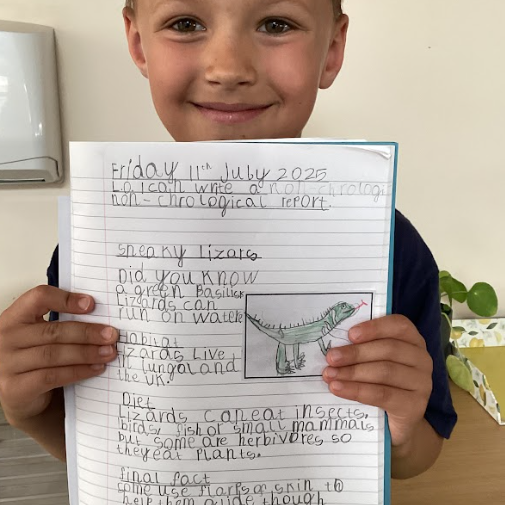 Friday 11th Juby 2025
L.o. I can write a non-chrologi
non-chrological report.
sneaky lizars
Did you know
a green Basilick
Lizards can
run on water
Habiat
Lizards Live
in Jungol and
the UK.
Diet
Lizards can eat insects,
birds, fish or small mammals
but some are herbivores so
they eat plants.
final fact
some use flarps of skin to
help them glide though